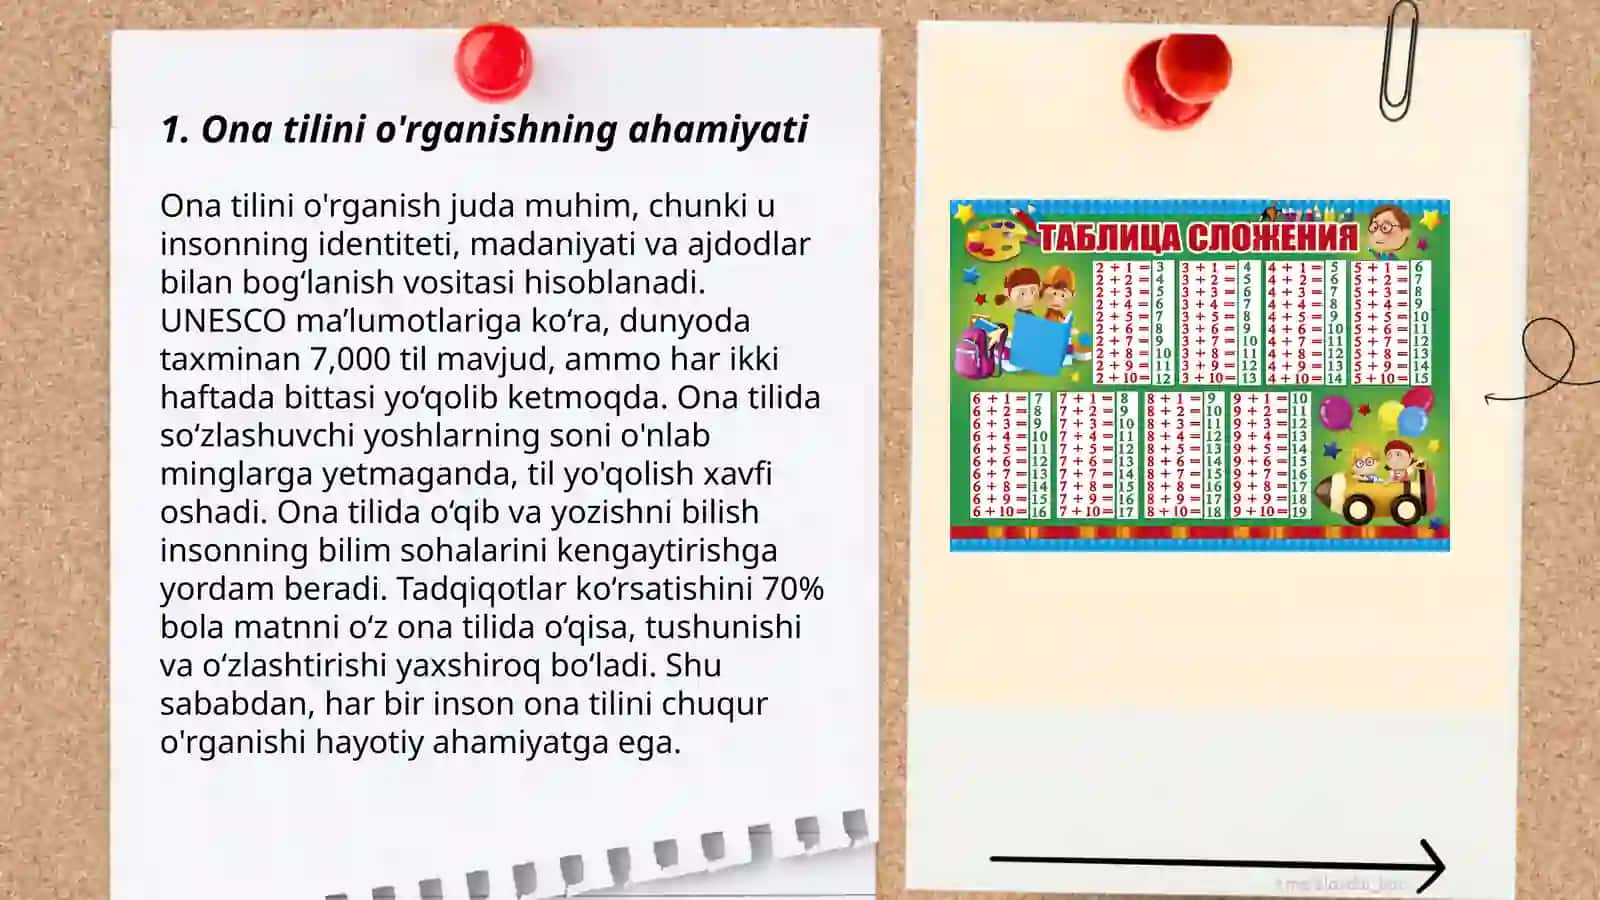 1. Ona tilini o'rganishning ahamiyati
Ona tilini o'rganish juda muhim, chunki u
insonning identiteti, madaniyati va ajdodlar
bilan bog‘lanish vositasi hisoblanadi.
UNESCO ma’lumotlariga ko‘ra, dunyoda
taxminan 7,000 til mavjud, ammo har ikki
haftada bittasi yo‘qolib ketmoqda. Ona tilida
so‘zlashuvchi yoshlarning soni o'nlab
minglarga yetmaganda, til yo'qolish xavfi
oshadi. Ona tilida o‘qib va yozishni bilish
insonning bilim sohalarini kengaytirishga
yordam beradi. Tadqiqotlar ko‘rsatishini 70%
bola matnni o‘z ona tilida o‘qisa, tushunishi
va o‘zlashtirishi yaxshiroq bo‘ladi. Shu
sababdan, har bir inson ona tilini chuqur
o'rganishi hayotiy ahamiyatga ega.
ТАБЛИЦА СЛОЖЕНИЯ
2 + 1 = 3 3 + 1 = 4 4 + 1 = 5 5 + 1 = 6
2 + 2 = 4 3 + 2 = 5 4 + 2 = 6 5 + 2 = 7
2 + 3 = 5 3 + 3 = 6 4 + 3 = 7 5 + 3 = 8
2 + 4 = 6 3 + 4 = 7 4 + 4 = 8 5 + 4 = 9
2 + 5 = 7 3 + 5 = 8 4 + 5 = 9 5 + 5 = 10
2 + 6 = 8 3 + 6 = 9 4 + 6 = 10 5 + 6 = 11
2 + 7 = 9 3 + 7 = 10 4 + 7 = 11 5 + 7 = 12
2 + 8 = 10 3 + 8 = 11 4 + 8 = 12 5 + 8 = 13
2 + 9 = 11 3 + 9 = 12 4 + 9 = 13 5 + 9 = 14
2 + 10 = 12 3 + 10 = 13 4 + 10 = 14 5 + 10 = 15
6 + 1 = 7 7 + 1 = 8 8 + 1 = 9 9 + 1 = 10
6 + 2 = 8 7 + 2 = 9 8 + 2 = 10 9 + 2 = 11
6 + 3 = 9 7 + 3 = 10 8 + 3 = 11 9 + 3 = 12
6 + 4 = 10 7 + 4 = 11 8 + 4 = 12 9 + 4 = 13
6 + 5 = 11 7 + 5 = 12 8 + 5 = 13 9 + 5 = 14
6 + 6 = 12 7 + 6 = 13 8 + 6 = 14 9 + 6 = 15
6 + 7 = 13 7 + 7 = 14 8 + 7 = 15 9 + 7 = 16
6 + 8 = 14 7 + 8 = 15 8 + 8 = 16 9 + 8 = 17
6 + 9 = 15 7 + 9 = 16 8 + 9 = 17 9 + 9 = 18
6 + 10 = 16 7 + 10 = 17 8 + 10 = 18 9 + 10 = 19